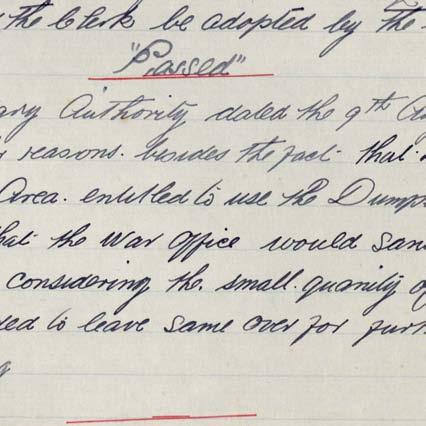 the Clerk be adopted by the
"Passed"
ary Authority dated the 9th
reasons. besides the fact that
Area. entitled to use the Dump
hat the War Office would San
considering the small. quanity of
ed to leave Same over for furt
g